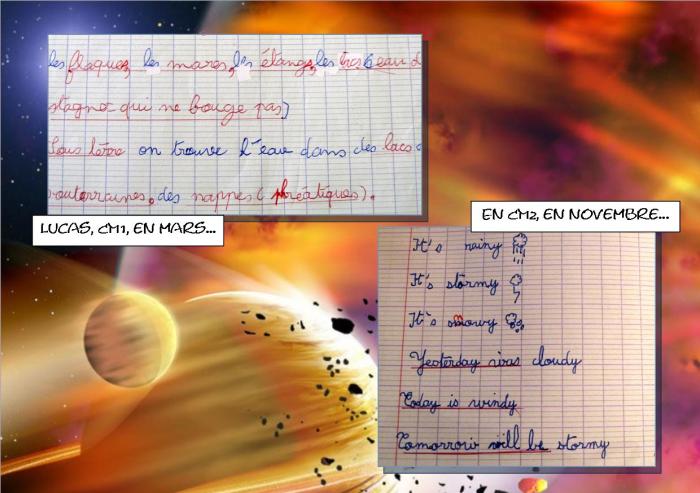 les flaques, les mares, les étangs, les trous (eau d
stagne qui ne bouge pas)
Sous terre on trouve l'eau dans des lacs
souterraines, des nappes (phréatiques).
LUCAS, CM1, EN MARS...
EN CM2, EN NOVEMBRE...
It's rainy
It's stormy
It's snowy
Yesterday was cloudy
Today is windy
Tomorrow will be stormy